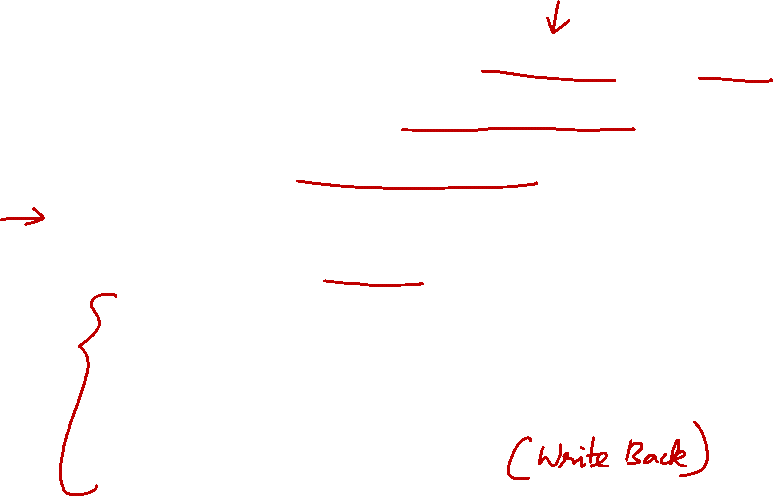 (Write Back)